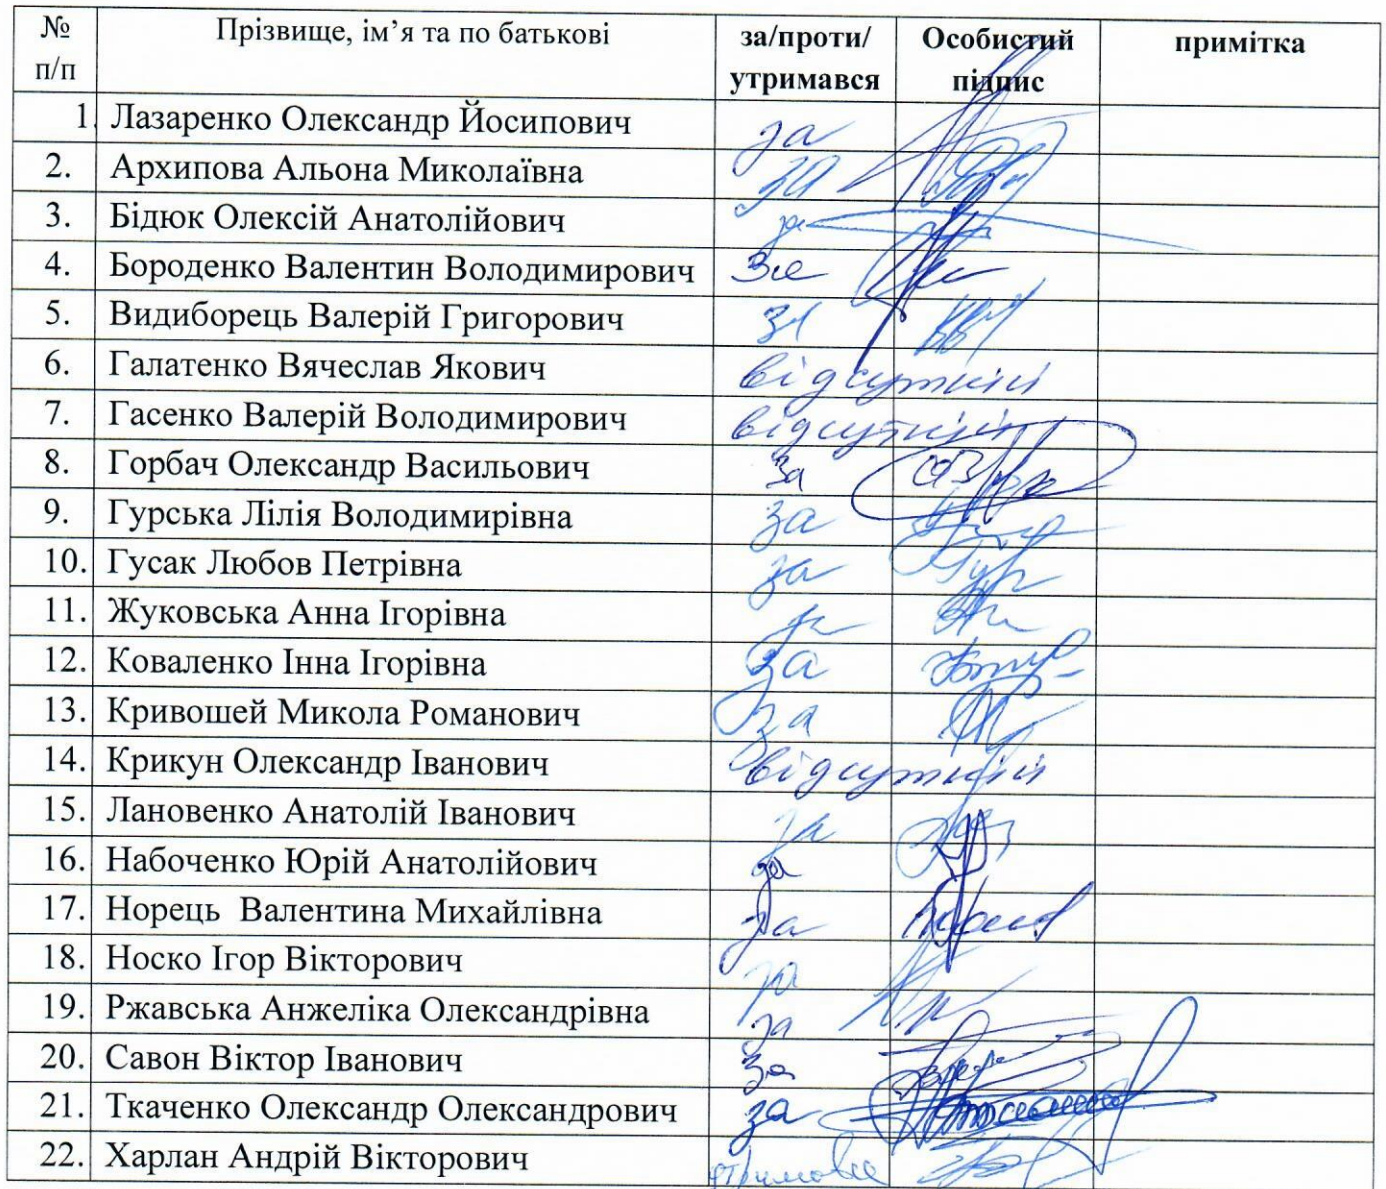 № п/п Прізвище, ім’я та по батькові за/проти/ утримався Особистий підпис примітка
1. Лазаренко Олександр Йосипович за
2. Архипова Альона Миколаївна за
3. Бідюк Олексій Анатолійович за
4. Бороденко Валентин Володимирович за
5. Видиборець Валерій Григорович за
6. Галатенко Вячеслав Якович відсутній
7. Гасенко Валерій Володимирович відсутній
8. Горбач Олександр Васильович за
9. Гурська Лілія Володимирівна за
10. Гусак Любов Петрівна за
11. Жуковська Анна Ігорівна за
12. Коваленко Інна Ігорівна за
13. Кривошей Микола Романович за
14. Крикун Олександр Іванович відсутній
15. Лановенко Анатолій Іванович за
16. Набоченко Юрій Анатолійович за
17. Норець Валентина Михайлівна за
18. Носко Ігор Вікторович за
19. Ржавська Анжеліка Олександрівна за
20. Савон Віктор Іванович за
21. Ткаченко Олександр Олександрович за
22. Харлан Андрій Вікторович